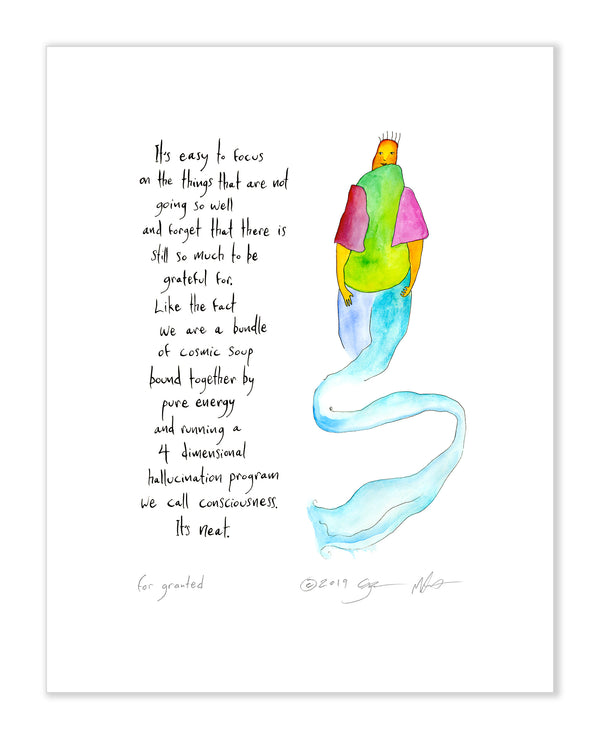 It's easy to focus
on the things that are not
going so well
and forget that there is
still so much to be
grateful for.
Like the fact
we are a bundle
of cosmic soup
bound together by
pure energy
and running a
4 dimensional
hallucination program
we call consciousness.
It's neat.
for granted
©2019